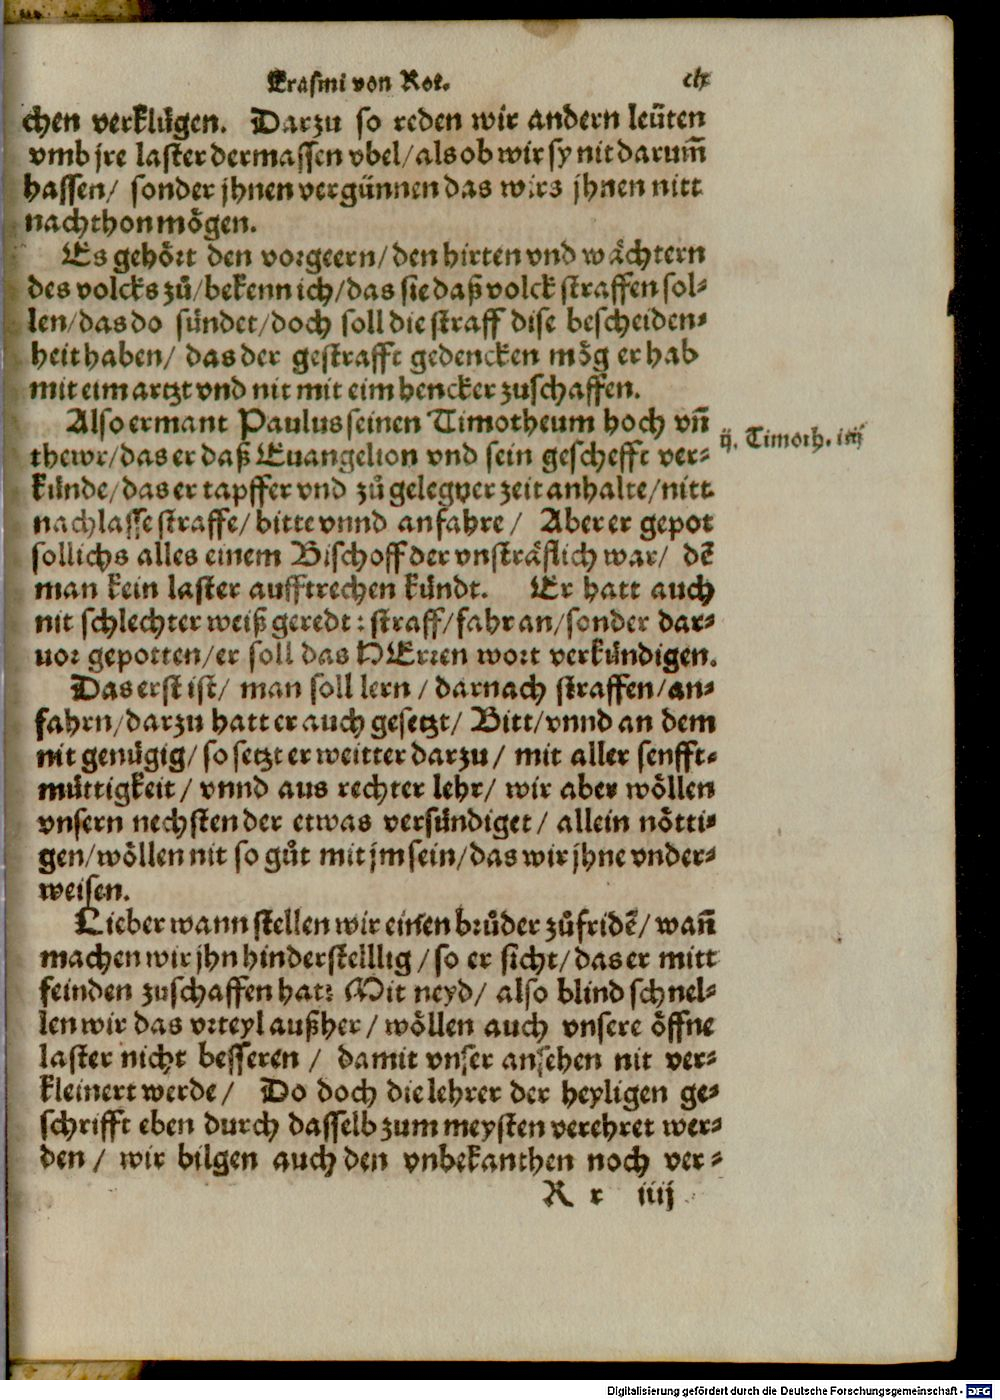 Erasmi von Rot. clx
chen verklůgen. Darzu so reden wir andern leüten
vmb jre laster dermassen vbel/als ob wir sy nit darum̃
hassen/ sonder jhnen vergünnen das wirs jhnen nitt
nachthon mögen.
Es gehört den vorgeern/den hirten vnd wächtern
des volcks zů/bekenn ich/das sie daß volck straffen sol⸗
len/das do sündet/doch soll die straff dise bescheiden⸗
heit haben/ das der gestrafft gedencken mög er hab
mit eim artzt vnd nit mit eim hencker zuschaffen.
Also ermant Paulus seinen Timotheum hoch vñ
thewr/das er daß Euangelion vnd sein geschefft ver⸗
künde/das er tapffer vnd zů gelegner zeit anhalte/nitt
nachlasse straffe/bitte vnnd anfahre/ Aber er gepot
sollichs alles einem Bischoff der vnsträflich war/ dẽ
man kein laster aufftrechen kündt. Er hatt auch
nit schlechter weiß geredt: straff/fahr an/sonder dar⸗
uor gepotten/er soll das HErren wort verkündigen.
Das erst ist/ man soll lern/darnach straffen/an⸗
fahrn/darzu hatt er auch gesetzt/ Bitt/vnnd an dem
nit genügig/so setzt er weitter darzu/ mit aller senfft⸗
müttigkeit/ vnnd aus rechter lehr/ wir aber wöllen
vnsern nechsten der etwas versündiget/ allein nötti⸗
gen/wöllen nit so gůt mit jm sein/das wir jhne vnder⸗
weisen.
Lieber wann stellen wir einen brůder zůfridẽ/wañ
machen wir jhn hinderstelllig/so er sicht/das er mitt
feinden zuschaffen hat: Mit neyd/ also blind schnel⸗
len wir das vrteyl außher/ wöllen auch vnsere öffne
laster nicht besseren/ damit vnser ansehen nit ver⸗
kleinert werde/ Do doch die lehrer der heyligen ge⸗
schrifft eben durch dasselb zum meysten verehret wer⸗
den/ wir bilgen auch den vnbekanthen noch ver⸗
R r iiij
ij. Timoth. iiij
Digitalisierung gefördert durch die Deutsche Forschungsgemeinschaft - DFG